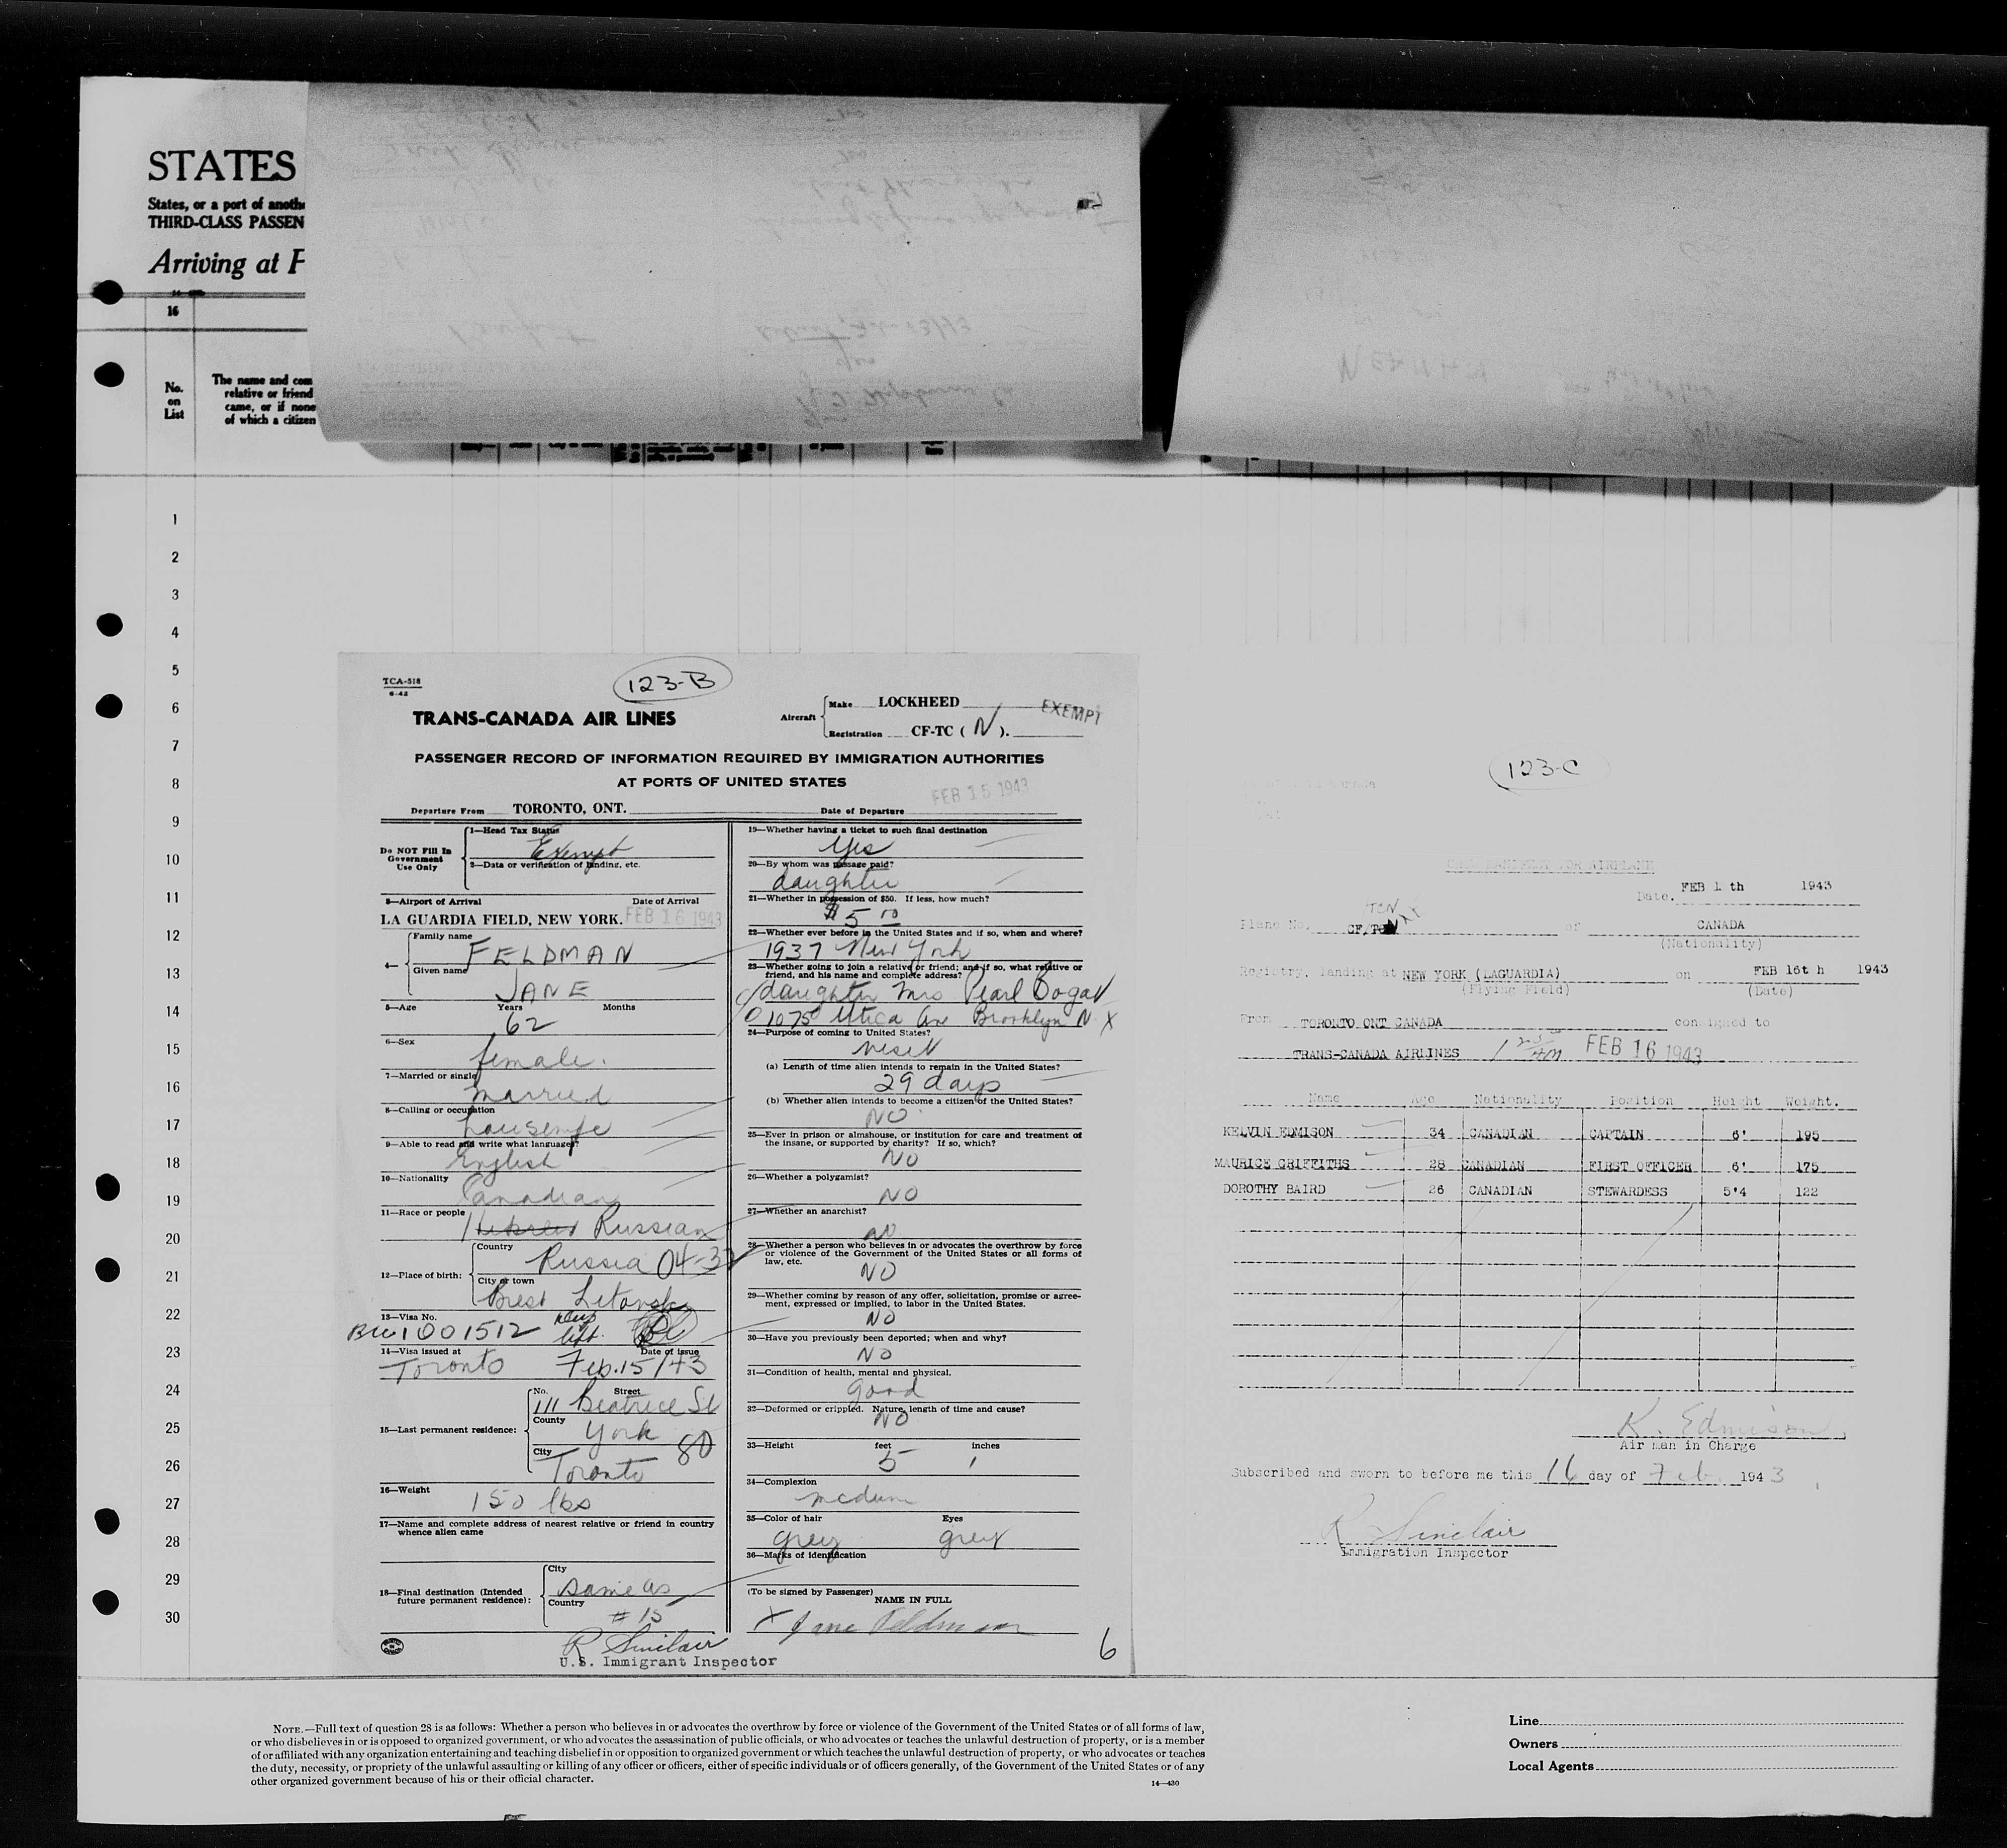 STATES
States, or a port of anoth
THIRD-CLASS PASSEN
Arriving at P
16
No.
on
List
The name and com
relative or friend
came, or if none
of which a citizen
1
2
3
4
5
6
7
8
9
10
11
12
13
14
15
16
17
18
19
20
21
22
23
24
25
26
27
28
29
30
TCA-518
6-42
123-B
TRANS-CANADA AIR LINES
Aircraft
Make LOCKHEED
EXEMPT
Registration CF-TC ( N ).
PASSENGER RECORD OF INFORMATION REQUIRED BY IMMIGRATION AUTHORITIES
AT PORTS OF UNITED STATES
FEB 15 1943
Departure From TORONTO, ONT. Date of Departure
Do NOT Fill In
Government
Use Only
1—Head Tax Status
Exempt
2—Data or verification of landing, etc.
3—Airport of Arrival Date of Arrival
LA GUARDIA FIELD, NEW YORK. FEB 16 1943
4—
Family name
FELDMAN
Given name
JANE
5—Age Years Months
62
6—Sex
female.
7—Married or single
married
8—Calling or occupation
housewife
9—Able to read and write what language?
English
10—Nationality
Canadian
11—Race or people
Hebrew Russian
12—Place of birth:
Country
Russia 04-32
City or town
Brest Litovsk
13—Visa No.
1001512
14—Visa issued at Date of issue
Toronto Feb. 15/43
15—Last permanent residence:
No. Street
111 Beatrice St
County
York
80
City
Toronto
16—Weight
150 lbs
17—Name and complete address of nearest relative or friend in country
whence alien came
18—Final destination (Intended
future permanent residence):
City
Same as
Country
# 15
R Sinclair
U.S. Immigrant Inspector
19—Whether having a ticket to such final destination
Yes
20—By whom was passage paid?
daughter
21—Whether in possession of $50. If less, how much?
$5 00
22—Whether ever before in the United States and if so, when and where?
1937 New York
23—Whether going to join a relative or friend; and if so, what relative or
friend, and his name and complete address?
daughter Mrs Pearl Bogav
1075 Utica Ave Brooklyn N.Y
24—Purpose of coming to United States?
visit
(a) Length of time alien intends to remain in the United States?
29 days
(b) Whether alien intends to become a citizen of the United States?
NO
25—Ever in prison or almshouse, or institution for care and treatment of
the insane, or supported by charity? If so, which?
NO
26—Whether a polygamist?
NO
27—Whether an anarchist?
no
28—Whether a person who believes in or advocates the overthrow by force
or violence of the Government of the United States or all forms of
law, etc.
NO
29—Whether coming by reason of any offer, solicitation, promise or agree-
ment, expressed or implied, to labor in the United States.
NO
30—Have you previously been deported; when and why?
NO
31—Condition of health, mental and physical.
good
32—Deformed or crippled. Nature, length of time and cause?
NO
33—Height feet inches
5 1
34—Complexion
medium
35—Color of hair Eyes
grey grey
36—Marks of identification
(To be signed by Passenger)
NAME IN FULL
x Jane Feldman
6
123-C
CREW MANIFEST FOR AIRPLANE
Date. FEB 1 th 1943
TCN
Plane No. CF/TC of CANADA
(Nationality)
Registry, landing at NEW YORK (LAGUARDIA) on FEB 16t h 1943
(Flying Field) (Date)
From TORONTO ONT CANADA consigned to
TRANS-CANADA AIRLINES 1 25 AM FEB 16 1943
Name Age Nationality Position Height Weight.
KELVIN EDMISON 34 CANADIAN CAPTAIN 6' 195
MAURICE GRIFFITHS 28 CANADIAN FIRST OFFICER 6' 175
DOROTHY BAIRD 26 CANADIAN STEWARDESS 5'4 122
K. Edmison
Air man in Charge
Subscribed and sworn to before me this 16 day of Feb. 1943
R Sinclair
Immigration Inspector
NOTE.—Full text of question 28 is as follows: Whether a person who believes in or advocates the overthrow by force or violence of the Government of the United States or of all forms of law,
or who disbelieves in or is opposed to organized government, or who advocates the assassination of public officials, or who advocates or teaches the unlawful destruction of property, or is a member
of or affiliated with any organization entertaining and teaching disbelief in or opposition to organized government or which teaches the unlawful destruction of property, or who advocates or teaches
the duty, necessity, or propriety of the unlawful assaulting or killing of any officer or officers, either of specific individuals or of officers generally, of the Government of the United States or of any
other organized government because of his or their official character.
14—430
Line
Owners
Local Agents